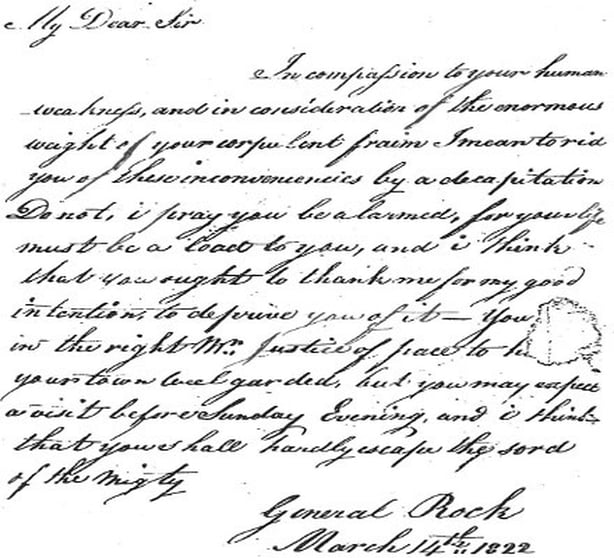 My Dear Sir
In compassion to your human
weakness, and in consideration of the enormous
waight of your corpulent fraim I mean to rid
you of these inconveniencies by a decapitation
Do not, i pray you be alarmed, for your life
must be a load to you, and i think
that you ought to thank me for my good
intentions to deprive you of it — You
in the right Mr. Justice of peace to h
your town well garded, but you may expect
a visit before Sunday Evening, and i think
that you shall hardly escape the sord
of the migty
General Rock
March 14th 1822